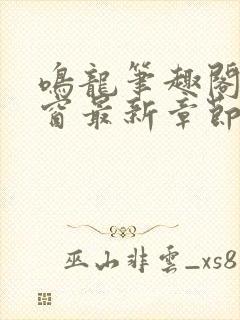 鳴龍筆趣閣
窗最新章節
巫山非雲_xs8